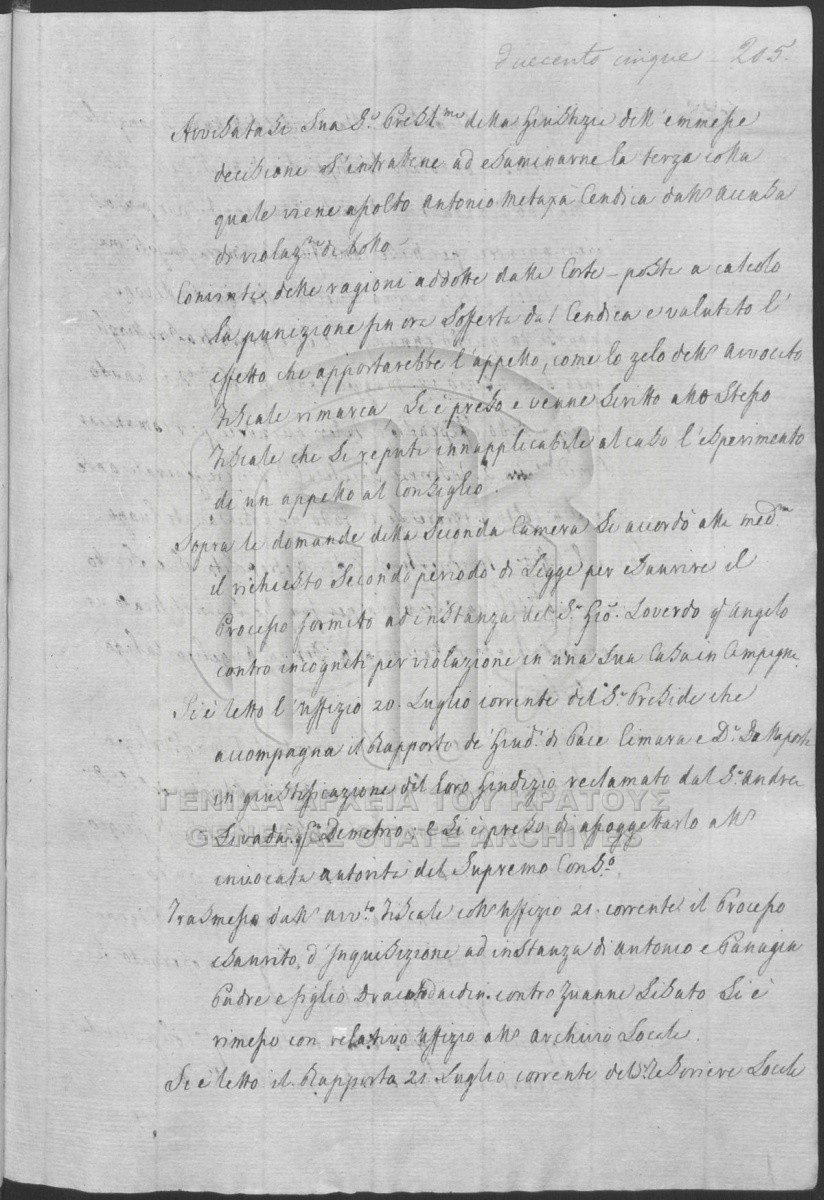 duecento cinque – 205.
Avvisatasi Sua Sig.ª Prest.ma della Giustizia dell'emmessa
decisione s'intrattene ad esaminarne la terza colla
quale viene assolto Antonio Metaxà Cendica dall'accusa
di violaz.ne di bollo.
Convinta delle ragioni addotte dalla Corte – poste a calcolo
la punizione fin ora sofferta dal Cendica e valutato l'
effetto che apportarebbe l'appello, come lo zelo dell'Avvocato
Fiscale rimarca, si è preso e venne scritto allo stesso
Fiscale che si reputi innapplicabile al caso l'esperimento
di un appello al Consiglio.
Sopra le domande della Seconda Camera si accordò alla med.ma
il richiesto secondo periodo di Legge per esaurire il
Processo formato ad instanza del S.r Gio. Loverdo q.m Angelo
contro incogniti per violazione in una sua Casa in Campagna.
Si è letto l'uffizio 20. Luglio corrente del S.r Preside che
accompagna il Rapporto de' Giud.i di Pace Cimara e D.r Dallaporta
in giustificazione del loro Giudizio reclamato dal S.r Andrea
q.m Demetrio; e si è preso di assoggettarlo all'
invocata autorità del Supremo Cons.o
Trasmesso dall'Avv.to Fiscale coll'uffizio 21. corrente il Processo
esaurito d'Inquisizione ad instanza di Antonio e Panagin
Padre e figlio contro Zuanne si è
rimesso con relativo uffizio all'Archivio Locale.
Si è letto il Rapporto 21 Luglio corrente del S.r Tesoriere Locale
ΓΕΝΙΚΑ ΑΡΧΕΙΑ ΤΟΥ ΚΡΑΤΟΥΣ
GENERAL STATE ARCHIVES